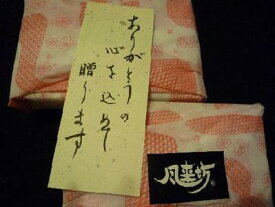 ありがとうの
心を込めて
贈ります